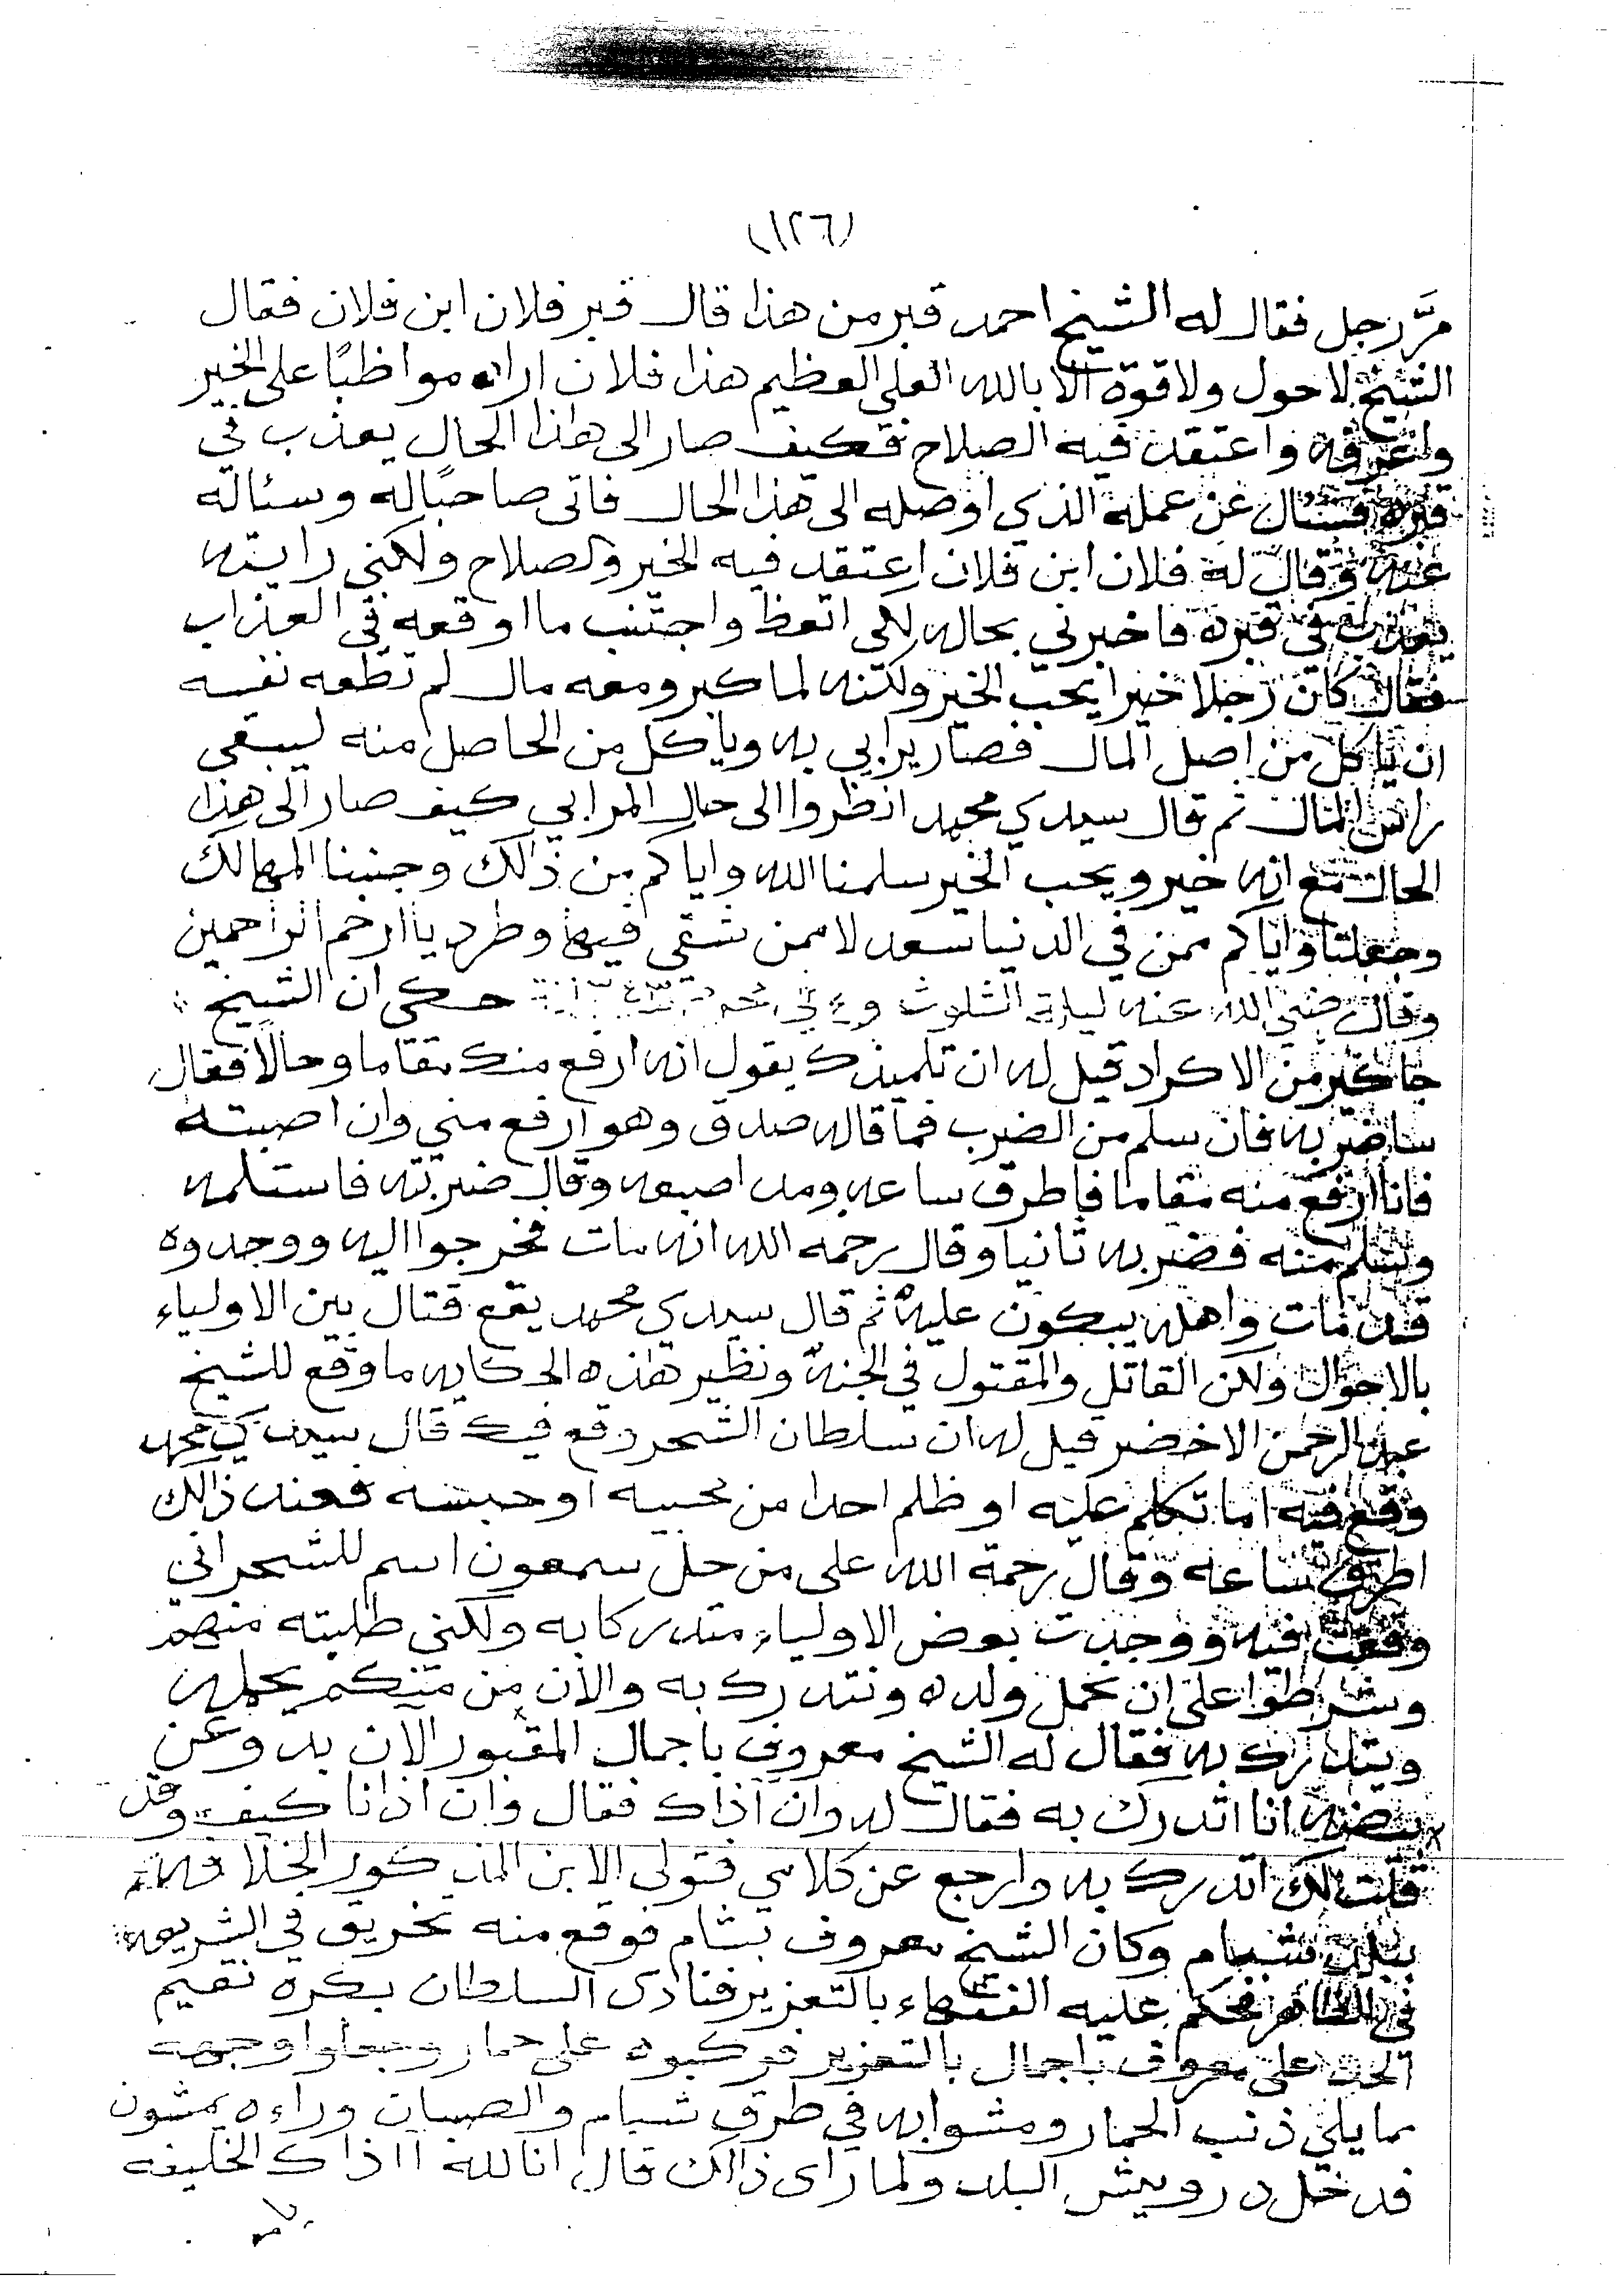 (١٢٦)
مرَّ رجل فقال له الشيخ احمد قبر من هذا قال قبر فلان ابن فلان فقال
الشيخ لا حول ولا قوة الا بالله العلي العظيم هذا فلان اراه مواظبًا على الخير
واعرفه واعتقد فيه الصلاح فكيف صار الى هذا الحال يعذب في
قبره فسئال عن عمله الذي اوصله الى هذا الحال فاتى صاحبًا له وسئاله
عنه وقال له فلان ابن فلان اعتقد فيه الخير والصلاح ولكني رايته
يعذب في قبره فاخبرني بحاله لكي اتعظ واجتنب ما اوقعه في العذاب
فقال كان رجلا خيرا يحب الخير ولكنه لما كبر ومعه مال لم تطعه نفسه
ان ياكل من اصل المال فصار يرابي به وياكل من الحاصل منه ليبقى
راس المال ثم قال سيدي محمد انظروا الى حال المرابي كيف صار الى هذا
الحال مع انه خير ويحب الخير سلمنا الله واياكم من ذالك وجنبنا المهالك
وجعلنا واياكم ممن في الدنيا سعد لا ممن شقي فيها وطرد يا ارحم الراحمين
وقال رضي الله عنه ليلة الثلوث حكي ان الشيخ
جاكير من الاكراد قيل له ان تلميذك يقول انه ارفع منك مقاما وحالا فقال
ساضربه فان سلم من الضرب فما قاله صدق وهو ارفع مني وان اصبته
فانا ارفع منه مقاما فاطرق ساعه ومد اصبعه وقال ضربته فاستلمه
وسلم منه فضربه ثانيا وقال رحمه الله انه مات فخرجوا اليه ووجدوه
قد مات واهله يبكون عليه ثم قال سيدي محمد يقع قتال بين الاولياء
بالاحوال ولكن القاتل والمقتول في الجنة ونظير هذه الحكايه ما وقع للشيخ
عبد الرحمن الاخضر قيل له ان سلطان الشحر وقع فيك قال سيدي محمد
وقع فيه اما تكلم عليه او ظلم احدا من محبيه او حبسه فعند ذالك
اطرق ساعه وقال رحمة الله على من حل سمعون اسم للشحر اني
وقعت فيه ووجدت بعض الاولياء متدركا به ولكني طلبته منهم
وشرطوا على ان نحمل ولده ونتدرك به والان من منكم يحمله
ويتدرك به فقال له الشيخ معروف باجمال المقبور الان بدوعن
بيضه انا اتدرك به فقال له وان آذاك فقال وان اذانا كيف وقد
قلت لك اتدرك به وارجع عن كلامي فتولى الابن المذكور الخلافه
ببلد شبام وكان الشيخ معروف بشام فوقع منه تخريق في الشريعه
في الظاهر فحكم عليه الفقهاء بالتعزير فنادى السلطان بكره نقيم
الحد على معروف باجمال بالتعزير فركبوه على حمار وجعلوا وجهه
مما يلي ذنب الحمار ومشوا به في طرق شبام والصبيان وراءه يمشون
فدخل درويش البلد ولما راى ذالك قال انا لله آاذاك الخليفه